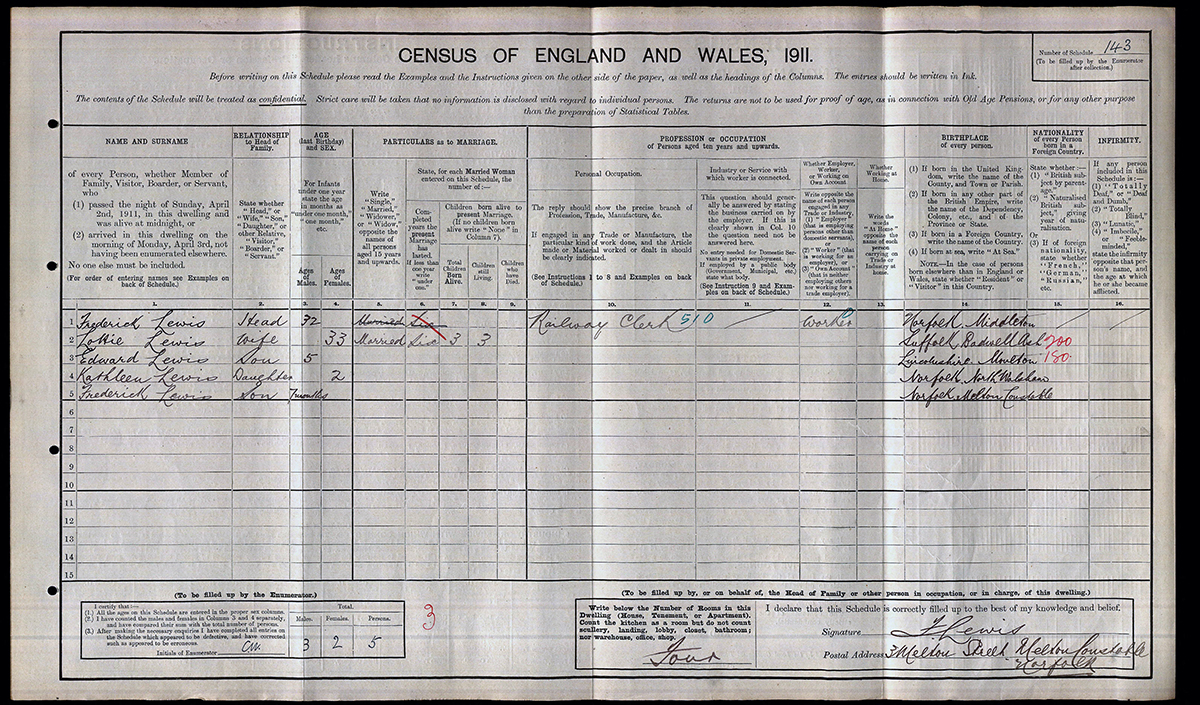 CENSUS OF ENGLAND AND WALES, 1911.
Number of Schedule 143
(To be filled up by the Enumerator after collection.)
Before writing on this Schedule please read the Examples and the Instructions given on the other side of the paper, as well as the headings of the Columns. The entries should be written in Ink.
The contents of the Schedule will be treated as confidential. Strict care will be taken that no information is disclosed with regard to individual persons. The returns are not to be used for proof of age, as in connection with Old Age Pensions, or for any other purpose
than the preparation of Statistical Tables.
NAME AND SURNAME
of every Person, whether Member of
Family, Visitor, Boarder, or Servant,
who
(1) passed the night of Sunday, April
2nd, 1911, in this dwelling and
was alive at midnight, or
(2) arrived in this dwelling on the
morning of Monday, April 3rd, not
having been enumerated elsewhere.
No one else must be included.
(For order of entering names see Examples on
back of Schedule.)
RELATIONSHIP
to Head of
Family.
State whether
"Head," or
"Wife," "Son,"
"Daughter," or
other Relative,
"Visitor,"
"Boarder," or
"Servant."
AGE
(last Birthday)
and SEX.
For Infants
under one year
state the age
in months as
"under one month,"
"one month,"
etc.
Ages of Males.
Ages of Females.
PARTICULARS as to MARRIAGE.
Write
"Single,"
"Married,"
"Widower,"
or "Widow,"
opposite the
names of
all persons
aged 15 years
and upwards.
State, for each Married Woman
entered on this Schedule, the
number of:—
Completed
years the
present
Marriage
has
lasted.
If less than
one year
write
"under
one."
Children born alive to
present Marriage.
(If no children born
alive write "None" in
Column 7).
Total Children Born Alive.
Children still Living.
Children who have Died.
PROFESSION or OCCUPATION
of Persons aged ten years and upwards.
Personal Occupation.
The reply should show the precise branch of
Profession, Trade, Manufacture, &c.
If engaged in any Trade or Manufacture, the
particular kind of work done, and the Article
made or Material worked or dealt in should
be clearly indicated.
(See Instructions 1 to 8 and Examples on back
of Schedule.)
Industry or Service with
which worker is connected.
This question should generally
be answered by stating
the business carried on by
the employer. If this is
clearly shown in Col. 10
the question need not be
answered here.
No entry needed for Domestic Servants
in private employment.
If employed by a public body
(Government, Municipal, etc.)
state what body.
(See Instruction 9 and Examples
on back of Schedule.)
Whether Employer,
Worker,
or Working on
Own Account
Write opposite the
name of each person
engaged in any
Trade or Industry,
(1) "Employer"
(that is employing
persons other than
domestic servants),
or
(2) "Worker" (that
is working for an
employer), or
(3) "Own Account"
(that is neither
employing others
nor working for a
trade employer).
Whether
Working at
Home.
Write the
words
"At Home"
opposite the
name of each
person
carrying on
Trade or
Industry at
home.
BIRTHPLACE
of every person.
(1) If born in the United Kingdom,
write the name of the
County, and Town or Parish.
(2) If born in any other part of
the British Empire, write
the name of the Dependency,
Colony, etc., and of the
Province or State.
(3) If born in a Foreign Country,
write the name of the Country.
(4) If born at sea, write "At Sea."
NOTE.—In the case of persons
born elsewhere than in England or
Wales, state whether "Resident" or
"Visitor" in this Country.
NATIONALITY
of every Person
born in a
Foreign Country.
State whether:—
(1) "British subject
by parentage,"
(2) "Naturalised
British subject,"
giving
year of naturalisation.
Or
(3) If of foreign
nationality,
state whether
"French,"
"German,"
"Russian,"
etc.
INFIRMITY.
If any person
included in this
Schedule is:—
(1) "Totally
Deaf," or "Deaf
and Dumb,"
(2) "Totally
Blind,"
(3) "Lunatic,"
(4) "Imbecile,"
or "Feeble-minded,"
state the infirmity
opposite that person's
name, and
the age at which
he or she became
afflicted.
1. 2. 3. 4. 5. 6. 7. 8. 9. 10. 11. 12. 13. 14. 15. 16.
1 Frederick Lewis Head 32 Married Six Railway Clerk 510 Worker Norfolk Middleton
2 Lottie Lewis Wife 33 Married Six 3 3 Suffolk Badwell Ash 200
3 Edward Lewis Son 5 Lincolnshire Moulton 180
4 Kathleen Lewis Daughter 2 Norfolk North Walsham
5 Frederick Lewis Son 7 months Norfolk Melton Constable
6
7
8
9
10
11
12
13
14
15
(To be filled up by the Enumerator.)
I certify that:—
(1.) All the ages on this Schedule are entered in the proper sex columns.
(2.) I have counted the males and females in Columns 3 and 4 separately,
and have compared their sum with the total number of persons.
(3.) After making the necessary enquiries I have completed all entries on
the Schedule which appeared to be defective, and have corrected
such as appeared to be erroneous.
Initials of Enumerator
Total.
Males. Females. Persons.
3 2 5
3
(To be filled up by, or on behalf of, the Head of Family or other person in occupation, or in charge, of this dwelling.)
Write below the Number of Rooms in this
Dwelling (House, Tenement, or Apartment).
Count the kitchen as a room but do not count
scullery, landing, lobby, closet, bathroom;
nor warehouse, office, shop.
Four
I declare that this Schedule is correctly filled up to the best of my knowledge and belief.
Signature F Lewis
Postal Address 3 Melton Street Melton Constable
Norfolk